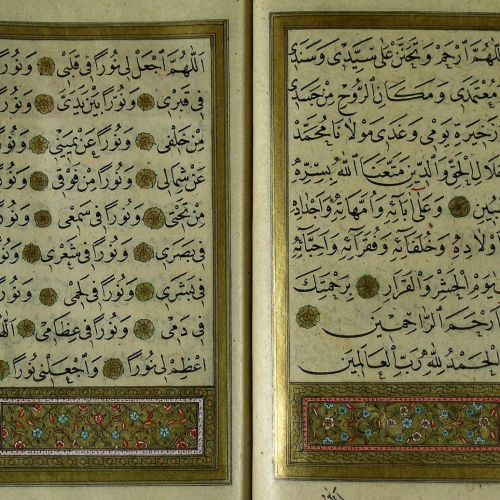 اللهم ارحم وتحنن على سيدي وسندي
معتمدي ومكان الروح من جسدي
ذخيرة يومي وغدي مولانا محمد
جلال الحق والدين متعنا الله بسره
وعلى آبائه وامهاته واجداده
اولاده وخلفائه وفقرائه واحبائه
يوم الحشر والقرار برحمتك
ارحم الراحمين
الحمد لله رب العالمين
اللهم اجعل لي نورا في قلبي ونورا
في قبري ونورا بين يدي ونورا
من خلفي ونورا عن يميني ونورا
عن شمالي ونورا من فوقي ونورا
من تحتي ونورا في سمعي ونورا
في بصري ونورا في شعري ونورا
في بشري ونورا في لحمي ونورا
في دمي ونورا في عظامي
اعظم لي نورا واجعلني نورا